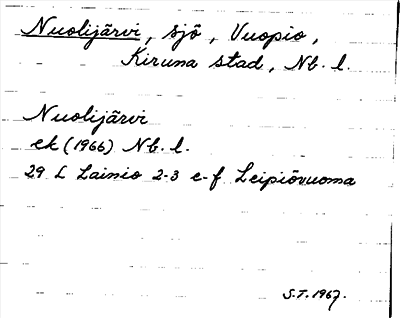 Nuolijärvi, sjö, Vuopio,
Kiruna stad, Nb. l.
Nuolijärvi
ek (1966) Nb. l.
29 L Lainio 2-3 e-f Leipiövuoma
S.T. 1967.